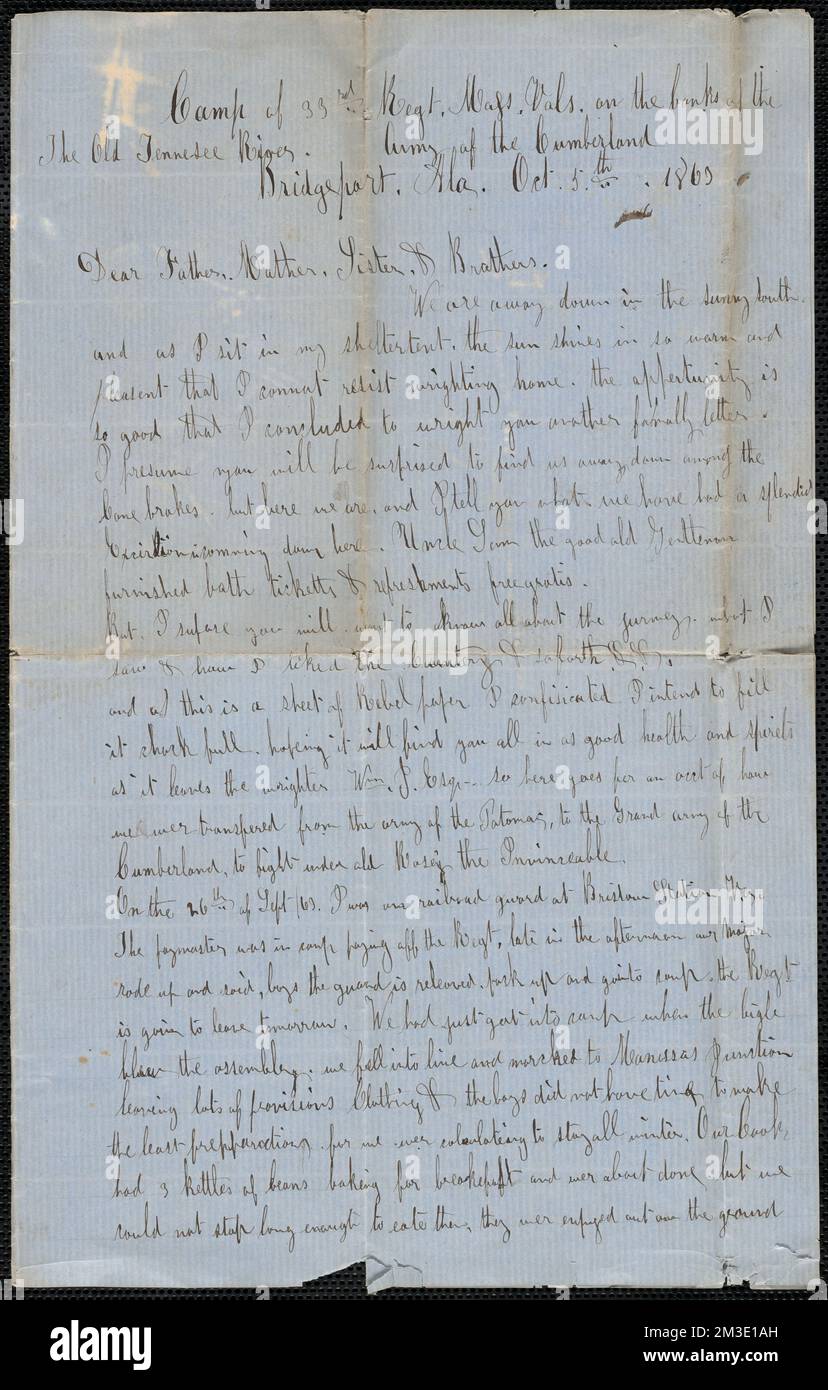 Camp of 33rd Regt. Mass. Vols. on the banks of the
The Old Tennesee River. Army of the Cumberland
Bridgeport, Ala. Oct. 5th. 1863
Dear Father. Mother. Sister. & Brothers.
We are away down in the sunny south.
and as I sit in my sheltertent. the sun shines in so warm and
pleasent that I connot resist wrighting home. the appertunity is
so good that I concluded to wright you another family letter.
I presume you will be surprised to find us away down among the
Cane brakes. but here we are. and I tell you what. we have had a splendid
Excirtion comming down here. Uncle Sam the good old Gentleman
furnished both ticketts & refreshments free gratis.
But. I supose you will want to know all about the jurney. what I
saw & how I liked the Cuntery & soforth &.&.
and as this is a sheet of Rebel paper I confisicated I intend to fill
it chock full. hopeing it will find you all in as good health and spirits
as it leaves the wrighter Wm. J. Esqr. so here goes for an acct of how
we wer transfered from the army of the Potomac, to the Grand army of the
Cumberland, to fight under old Rosey the Invinceable.
On the 26th of Sept /63. I was on railroad guard at Bristow Station
The paymaster was in camp paying off the Regt, late in the afternoon our Major
rode up and said, boys the guard is releoved. pack up and go into camp. the Regt
is going to leave tomorrow. We had just got into camp when the bugle
blew the assembley. we fell into line and marched to Manassas Junction
leaving lots of provisions Clothing & the boys did not have time to make
the least prepparations for we wer calculating to stay all winter. Our Cook
had 3 kettles of beans baking for breakefast and wer about done but we
could not stop long enough to eate them, they wer out on the ground
alamy
a
a
a
a
alamy
Image ID: 2M3E1AH
www.alamy.com